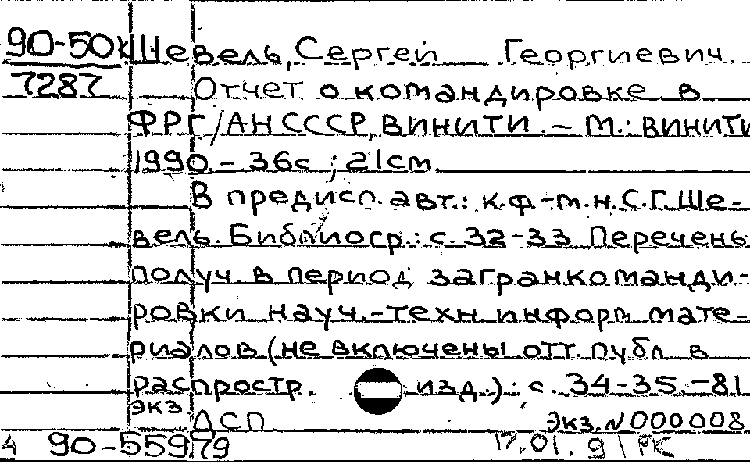 90-50к Шевель, Сергей Георгиевич.
7287 Отчет о командировке в
ФРГ/АН СССР, ВИНИТИ. - М.: ВИНИТИ
1990. - 36с ; 21см.
В предисл. авт.: к.ф-м.н. С.Г. Ше-
вель. Библиогр.: с. 32-33 Перечень
получ. в период загранкоманди-
ровки науч.-техн. информ. мате-
риалов (не включены отт. публ. в
распростр. изд.): с. 34-35. - 81
экз ДСП Экз. N 000008
4 90-55979 17.01.91 РС